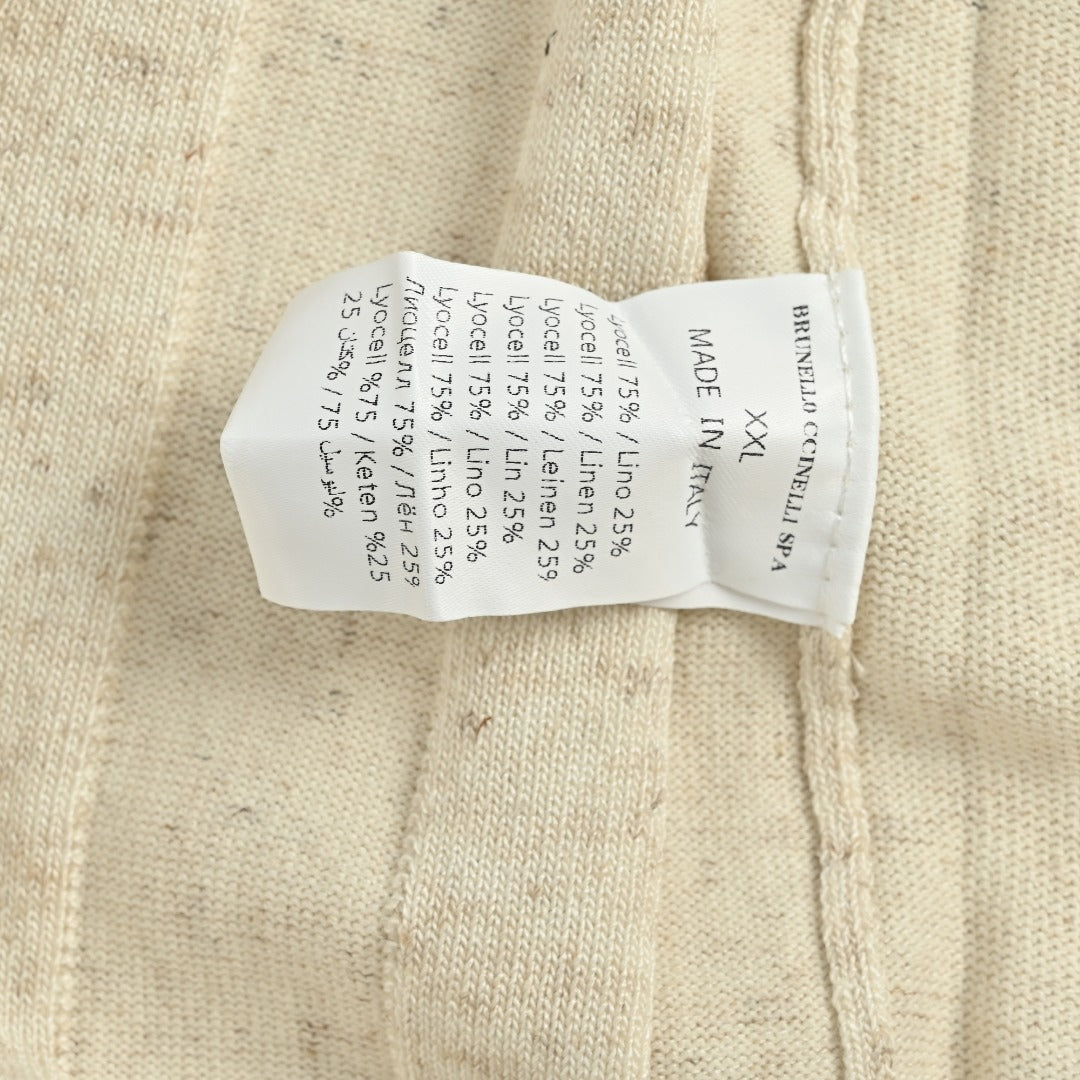 BRUNELLO CCINELLI SPA
XXL
MADE IN ITALY
Lyocell 75% / Lino 25%
Lyocell 75% / Linen 25%
Lyocell 75% / Leinen 259
Lyocell 75% / Lin 25%
Lyocell 75% / Lino 25%
Lyocell 75% / Linho 25%
Лиоцелл 75% / Лён 259
Lyocell %75 / Keten %25
25 %كتان / 75 %ليوسيل